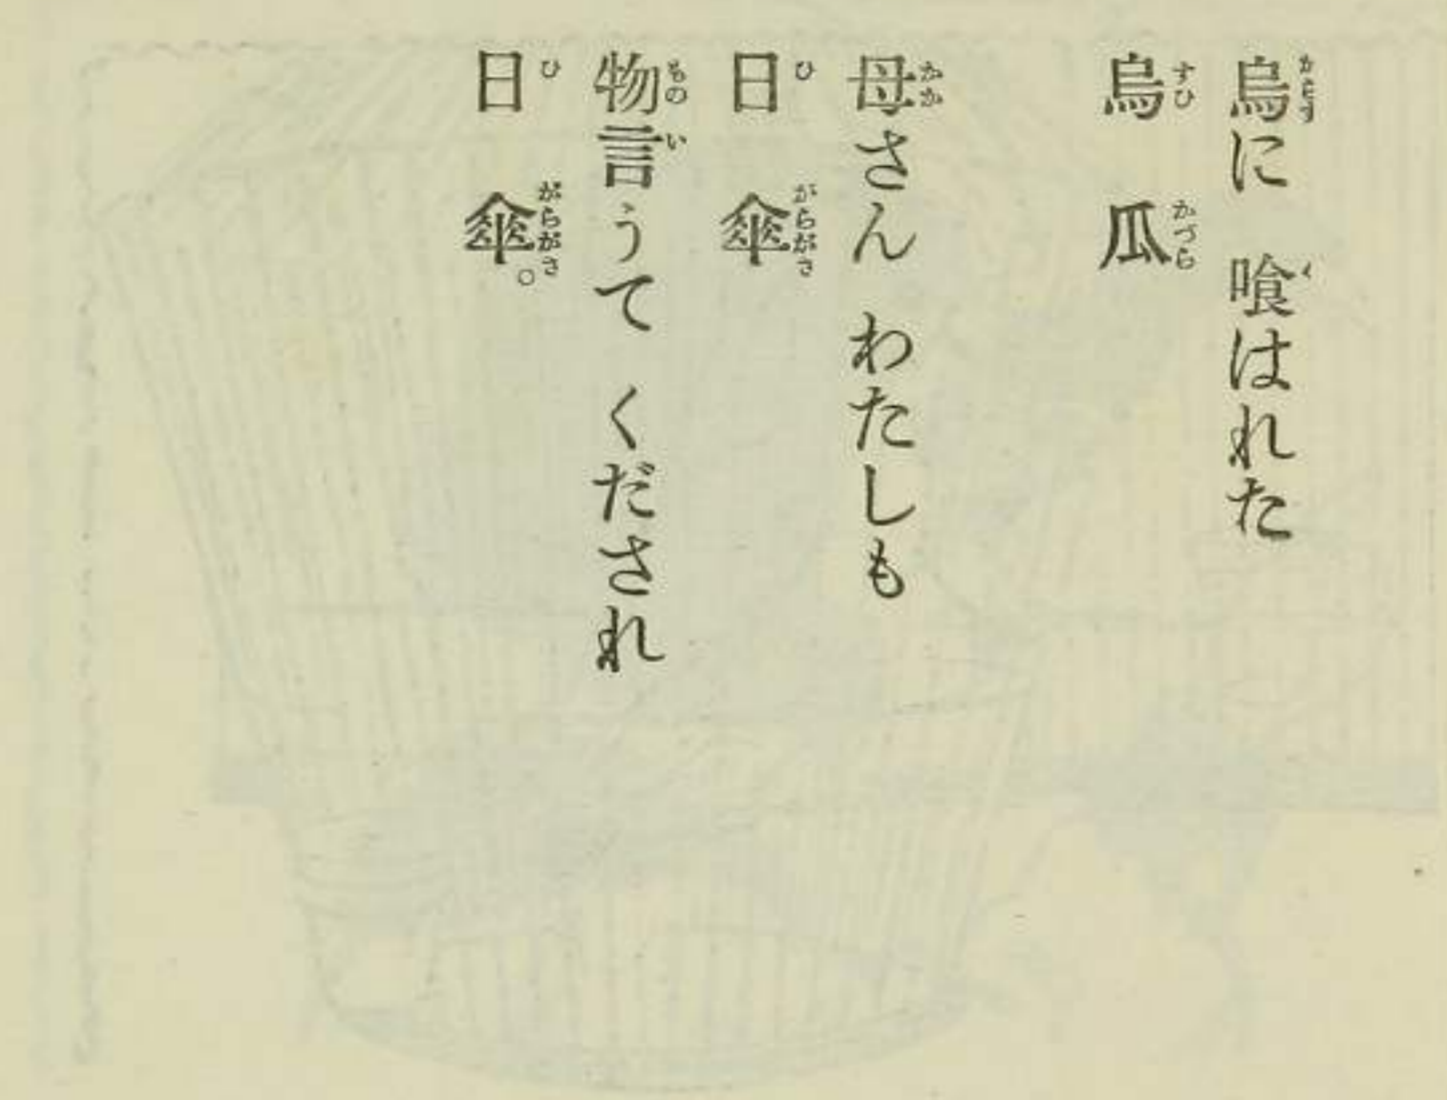 烏に 喰はれた
烏 瓜
母さん わたしも
日 傘
物言うて くだされ
日 傘。